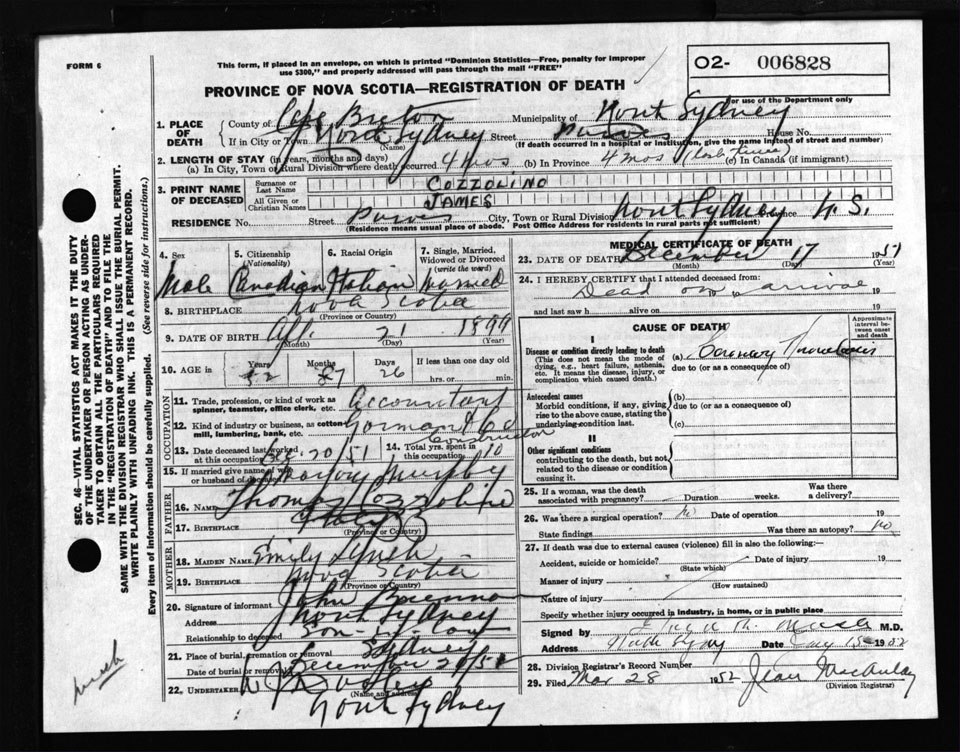 FORM 6
This form, if placed in an envelope, on which is printed "Dominion Statistics—Free, penalty for improper
use $300," and properly addressed will pass through the mail "FREE"
O2- 006828
For use of the Department only
PROVINCE OF NOVA SCOTIA—REGISTRATION OF DEATH
1. PLACE OF DEATH
County of Cape Breton Municipality of North Sydney
If in City or Town North Sydney Street Purves House No.
(Name) (If death occurred in a hospital or institution, give the name instead of street and number)
2. LENGTH OF STAY (in years, months and days)
(a) In City, Town or Rural Division where death occurred 4 mos (b) In Province 4 mos (last time) (c) In Canada (if immigrant)
3. PRINT NAME OF DECEASED
Surname or Last Name COZZOLINO
All Given or Christian Names JAMES
RESIDENCE No. Street Purves City, Town or Rural Division North Sydney Province N.S.
(Residence means usual place of abode. Post Office Address for residents in rural parts not sufficient)
4. Sex 5. Citizenship (Nationality) 6. Racial Origin 7. Single, Married, Widowed or Divorced (write the word)
Male Canadian Italian Married
8. BIRTHPLACE Nova Scotia
(Province or Country)
9. DATE OF BIRTH 21 1899
(Month) (Day)
10. AGE in Years Months Days If less than one day old
52 26 hrs. or min.
OCCUPATION
11. Trade, profession, or kind of work as spinner, teamster, office clerk, etc. Accountant
12. Kind of industry or business, as cotton mill, lumbering, bank, etc. Gorman & Co
Construction
13. Date deceased last worked at this occupation 20/51 14. Total yrs. spent in this occupation 10
15. If married give name of wife or husband of deceased Murphy
FATHER
16. Name Thomas Cozzolino
17. BIRTHPLACE Italy
(Province or Country)
MOTHER
18. MAIDEN NAME Emily Lynch
19. BIRTHPLACE Nova Scotia
(Province or Country)
20. Signature of informant John Brennan
Address North Sydney
Relationship to deceased Son-in-law
21. Place of burial, cremation or removal Sydney
Date of burial or removal December 20/51
22. UNDERTAKER Dooley
(Name and Address)
North Sydney
MEDICAL CERTIFICATE OF DEATH
23. DATE OF DEATH December 17 1951
(Month) (Day) (Year)
24. I HEREBY CERTIFY that I attended deceased from:
Dead on arrival 19
and last saw h alive on 19
CAUSE OF DEATH
Approximate interval between onset and death
I
Disease or condition directly leading to death (a) Coronary Thrombosis
(This does not mean the mode of dying, e.g., heart failure, asthenia, etc. It means the disease, injury, or complication which caused death.)
due to (or as a consequence of)
Antecedent causes (b)
Morbid conditions, if any, giving rise to the above cause, stating the underlying condition last.
due to (or as a consequence of)
(c)
II
Other significant conditions
contributing to the death, but not related to the disease or condition causing it.
25. If a woman, was the death associated with pregnancy? Duration weeks. Was there a delivery?
26. Was there a surgical operation? No Date of operation 19
State findings Was there an autopsy? No
27. If death was due to external causes (violence) fill in also the following:—
Accident, suicide or homicide? Date of injury 19
(State which)
Manner of injury
(How sustained)
Nature of injury
Specify whether injury occurred in industry, in home, or in public place
Signed by M.D.
Address North Sydney Date 1952
28. Division Registrar's Record Number
29. Filed Mar 28 1952 Jean MacAulay
(Division Registrar)
SEC. 46—VITAL STATISTICS ACT MAKES IT THE DUTY
OF THE UNDERTAKER OR PERSON ACTING AS UNDER-
TAKER TO OBTAIN ALL THE PARTICULARS REQUIRED
IN THE "REGISTRATION OF DEATH" AND TO FILE THE
SAME WITH THE DIVISION REGISTRAR WHO SHALL ISSUE THE BURIAL PERMIT.
WRITE PLAINLY WITH UNFADING INK. THIS IS A PERMANENT RECORD.
Every item of information should be carefully supplied. (See reverse side for instructions.)